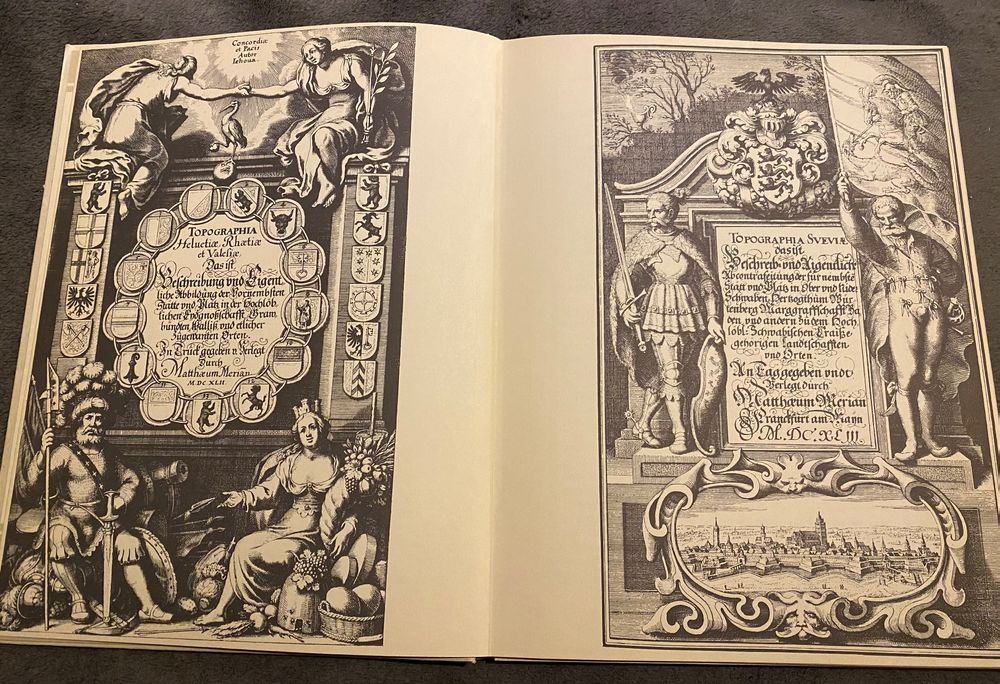 Concordiæ
et Pacis
Autor
Iehova.
TOPOGRAPHIA
Helvetiæ, Rhætiæ
et Valesiæ,
Das ist
Beschreibung vnd Eigent
liche Abbildung der Vornembsten
Stätte vnd Plätz in der Hochlöb
lichen Eydgnoßschafft, Graw
bündten, Walliß, vnd etlicher
Zugewanten Orten.
In Truck gegeben v. Verlegt
Durch
Matthæum Merian
MDCXLII
TOPOGRAPHIA SVEVIÆ
das ist
Beschreib: vnd Aigentliche
Abcontrafeitung der fürnembste
Stätt vnd Plätz in Ober vnd Nider
Schwaben, Hertzogthum Wür
tenberg Marggraffschafft Ba
den, vnd andern zu dem Hoch
löbl: Schwabischen Craiße
gehörigen Landtschafften
vnd Orten.
An Tag gegeben vndt
Verlegt durch
Matthæum Merian
Franckfurt am Mayn
M.DC.XLIII.